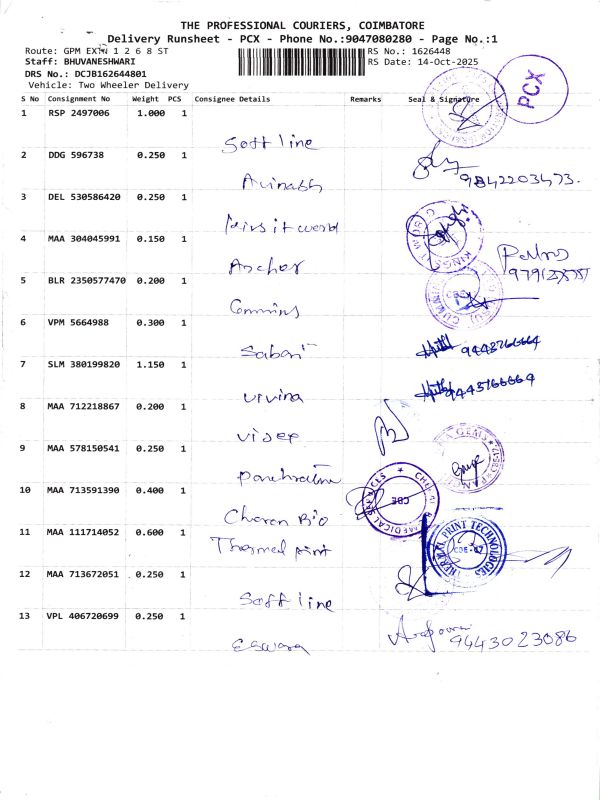 THE PROFESSIONAL COURIERS, COIMBATORE
Delivery Runsheet - PCX - Phone No.:9047080280 - Page No.:1
Route: GPM EXTN 1 2 6 8 ST RS No.: 1626448
Staff: BHUVANESHWARI RS Date: 14-Oct-2025
DRS No.: DCJB162644801
Vehicle: Two Wheeler Delivery
PCX
S No Consignment No Weight PCS Consignee Details Remarks Seal & Signature
1 RSP 2497006 1.000 1
Soft line
2 DDG 596738 0.250 1
Avinash 9842203473.
3 DEL 530586420 0.250 1
4 MAA 304045991 0.150 1
Anchor
5 BLR 2350577470 0.200 1
Cummins
6 VPM 5664988 0.300 1
Sabari 9443766664
7 SLM 380199820 1.150 1
Urvina 9443766664
8 MAA 712218867 0.200 1
9 MAA 578150541 0.250 1
10 MAA 713591390 0.400 1
Charan Bio
CBE
11 MAA 111714052 0.600 1
Thermal print
THERMAL PRINT TECHNOLOGIES
CBE-47
12 MAA 713672051 0.250 1
Soft line
13 VPL 406720699 0.250 1
Eswara 9443023086